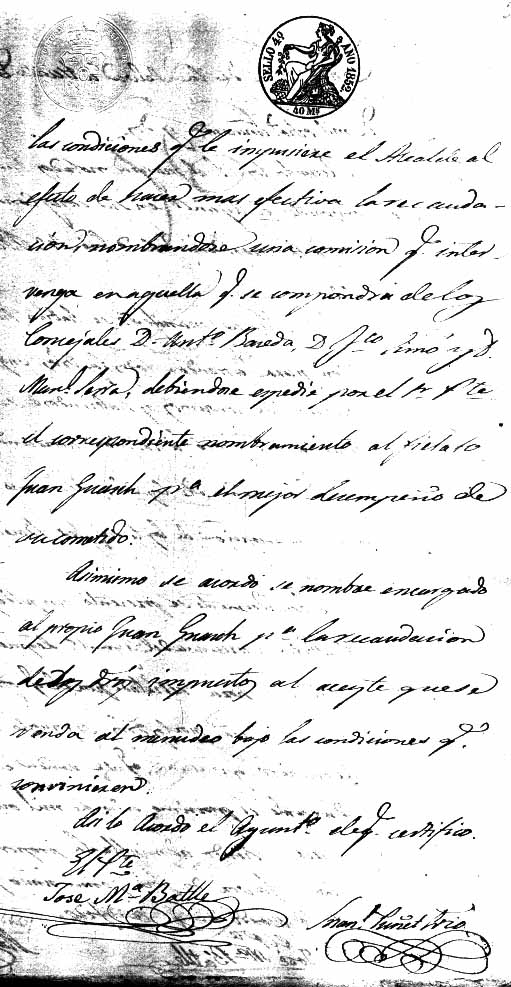 SELLO 4º AÑO 1859.
40 Ms
las condiciones q.e le impusiere el Alcalde al
efecto de hacer mas efectiva la recauda-
cion, nombrandose una comision q.e inter-
venga en aquella q.e se compondrá de los
Concejales D. Ant.o Bareda, D. Fco Simó y D.
Man.l Serra, debiendose espedir por el Sr Pte
el correspondiente nombramiento al fielato
Juan Guasch p.a el mejor desempeño de
su cometido.
Asimismo se acordó se nombre encargado
al propio Juan Guasch p.a la recaudacion
de los impuestos al aceyte que se
venda al menudeo bajo las condiciones q.e
convinieren.
Asi lo Acordó el Ayunt.o de q.e certifico.
El Pte
Jose M.a Batlle